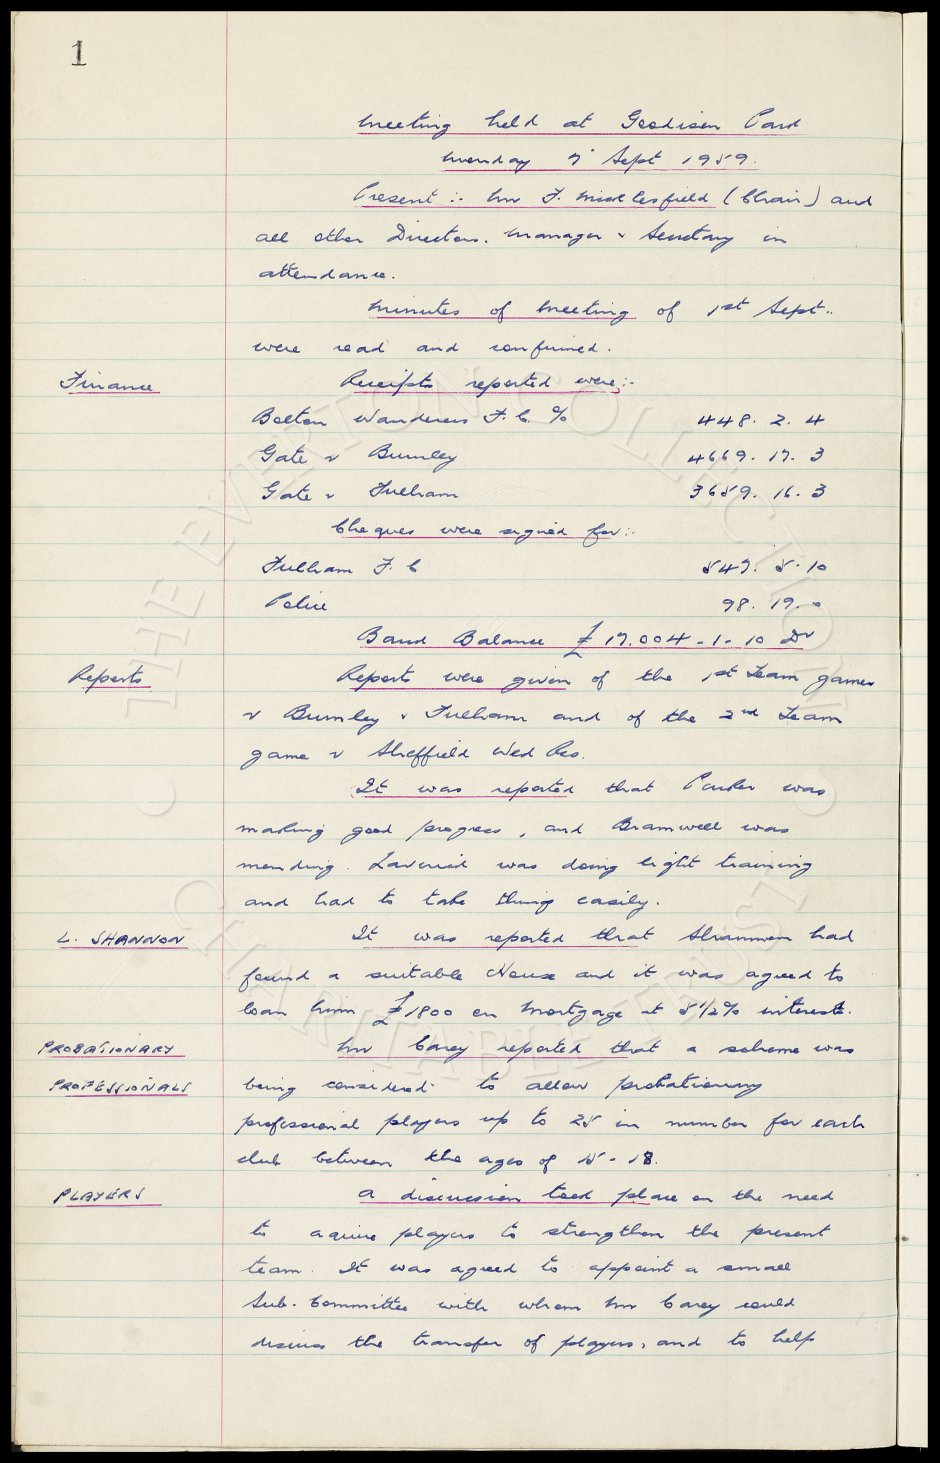 1
Meeting held at Goodison Park
Monday 7th Sept 1959.
Present :- Mr F. Micklesfield (Chair) and
all other Directors. Manager & Secretary in
attendance.
Minutes of Meeting of 1st Sept..
were read and confirmed.
Finance
Receipts reported were:-
Bolton Wanderers F.C. % 448. 2. 4
Gate v Burnley 4669. 17. 3
Gate v Fulham 3659. 16. 3
Cheques were signed for:-
Fulham F.C 547. 5. 10
Police 98. 19. 0
Bank Balance £17.004-1-10 Dr
Reports
Reports were given of the 1st Team games
v Burnley & Fulham and of the 2nd Team
game v Sheffield Wed Res.
It was reported that Parker was
making good progress, and Bramwell was
mending. Laverick was doing light training
and had to take things easily.
L. SHANNON
It was reported that Shannon had
found a suitable House and it was agreed to
loan him £1800 on Mortgage at 5 1/2% interest.
PROBATIONARY
PROFESSIONALS
Mr Carey reported that a scheme was
being considered to allow probationary
professional players up to 25 in number for each
club between the ages of 15-18.
PLAYERS
A discussion took place on the need
to acquire players to strengthen the present
team. It was agreed to appoint a small
Sub-Committee with whom Mr Carey could
discuss the transfer of players, and to help
THE EVERTON COLLECTION
CHARITABLE TRUST